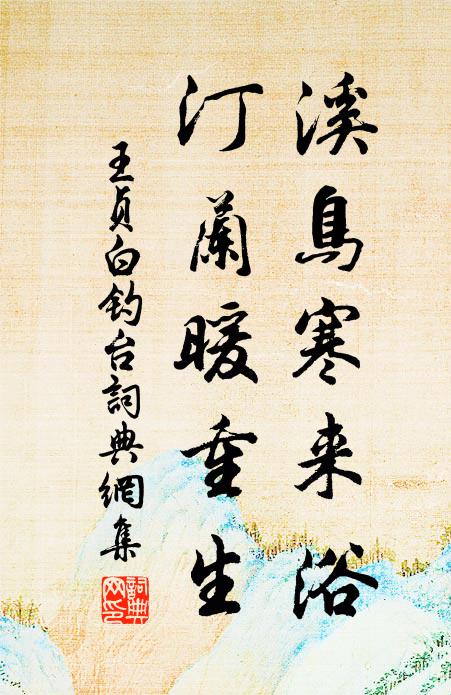 溪鳥寒来浴
汀蘭暖重生
王貞白釣台詞典網集
詞典网印